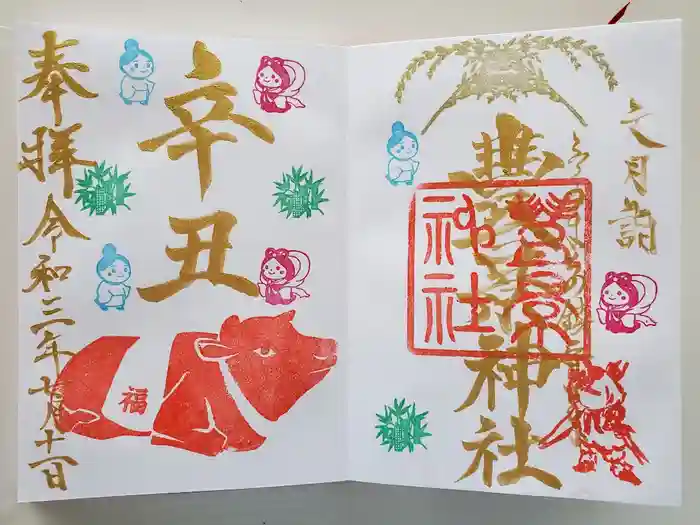 文月詣
豊景神社
豊景
神社
辛丑
福
奉拝 令和三年七月十一日